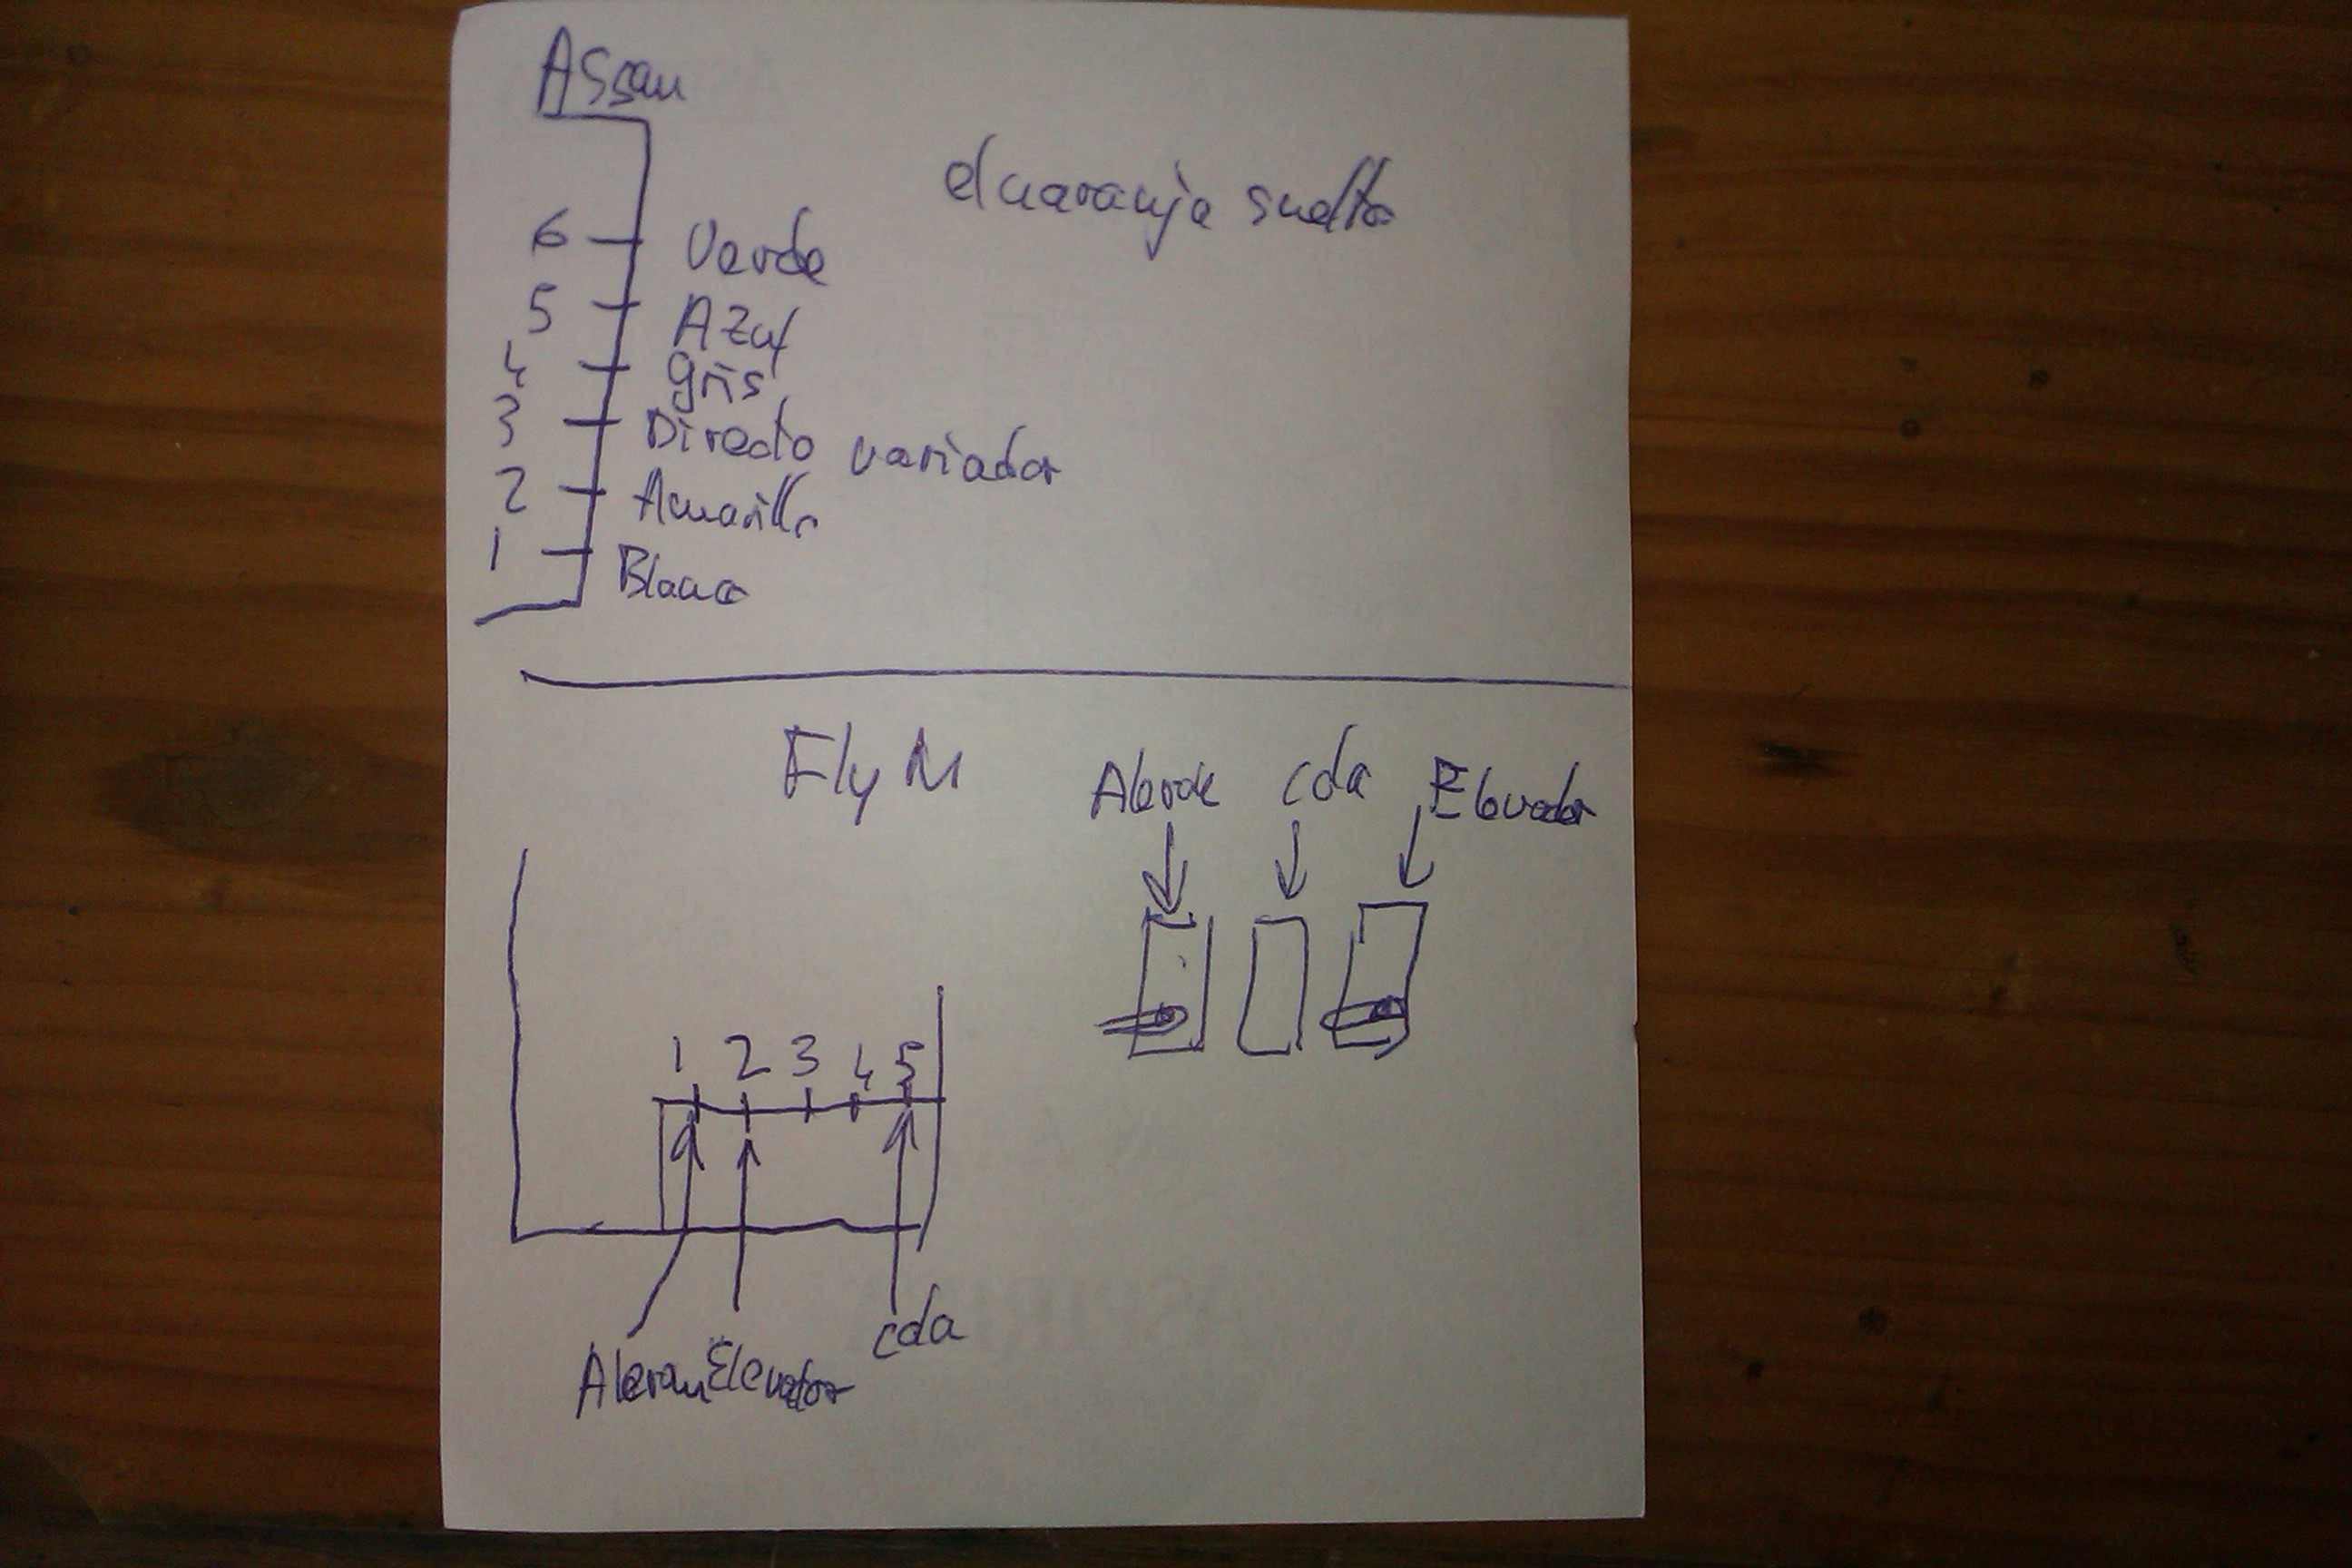 ASSan
el naranja suelto
6 Verde
5 Azul
4 gris
3 Directo variador
2 Amarillo
1 Blanco
Fly M
cda Elevador
1 2 3 4 5
Aleron Elevador cda